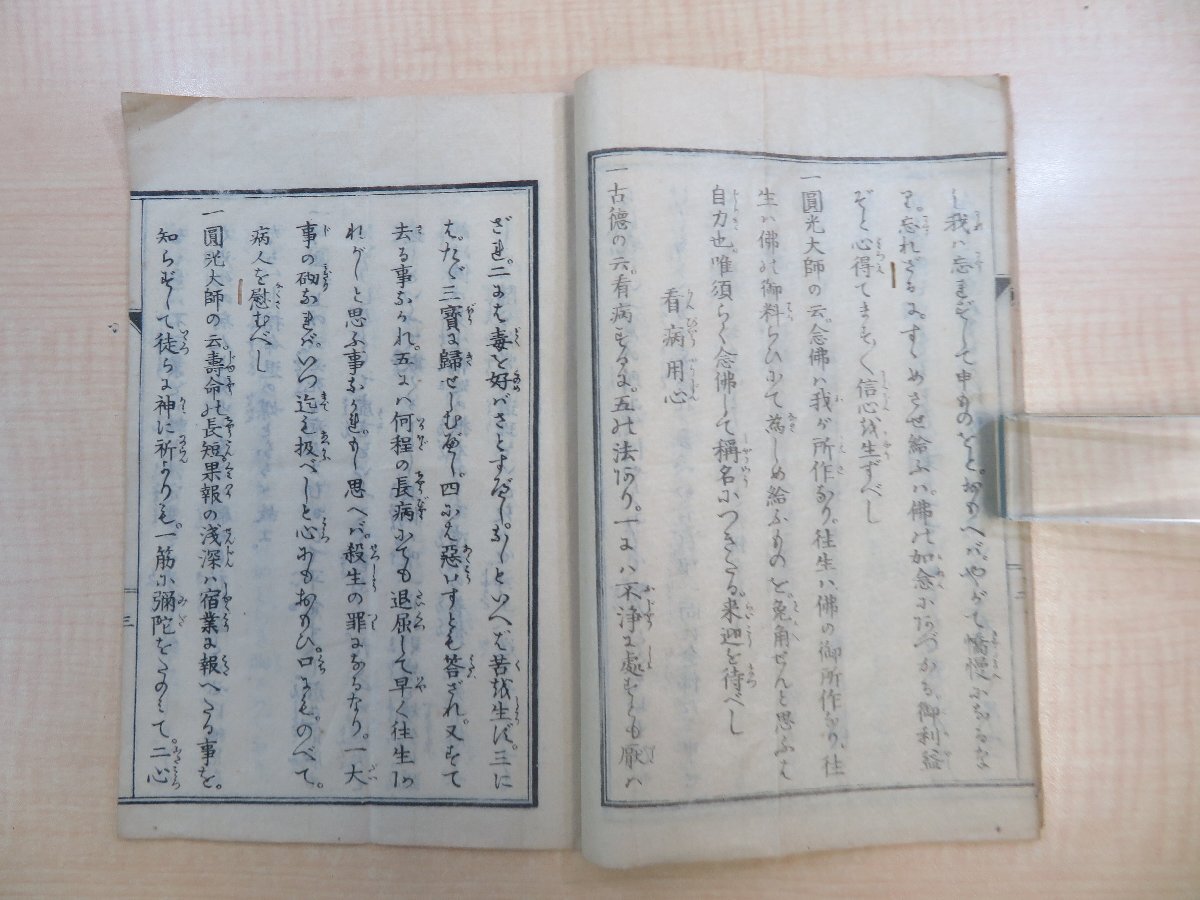 し我ハ忘れずして申ものをと。おもへバ。やがて憍慢になるな
り。忘れざるに。すゝめさせ給ふハ。佛の加念にあづかる。御利益
ぞと心得てまもなく信心を生ずべし
一圓光大師の云。念佛ハ我が所作なり。往生ハ佛の御所作なり。往
生ハ佛の御料らひにて為しめ給ふものを。兎角せんと思ふは
自力也。唯須らく念佛して稱名につきたる。来迎を待べし
看病用心
一古德の云。看病するに。五の法あり。一にハ不浄の處をも厭ハ
ざれ。二にハ毒を好バさとすべし。なしといへば苦を生ず。三に
は。たゞ三寳に歸せしむべし。四にハ惡口すとも答ざれ。又すて
去る事なかれ。五にハ何程の長病にても退屈して早く往生か
れがしと思ふ事なかれ。もし思へバ。殺生の罪になるなり。一大
事の砌なれバ。いつ迄も扱べしと心にもおもひ。口にも。のべて。
病人を慰むべし
一圓光大師の云。壽命の長短果報の浅深ハ宿業に報へたる事を。
知らずして徒らに神に祈らんよりも。一筋に彌陀をたのミて。二心
三